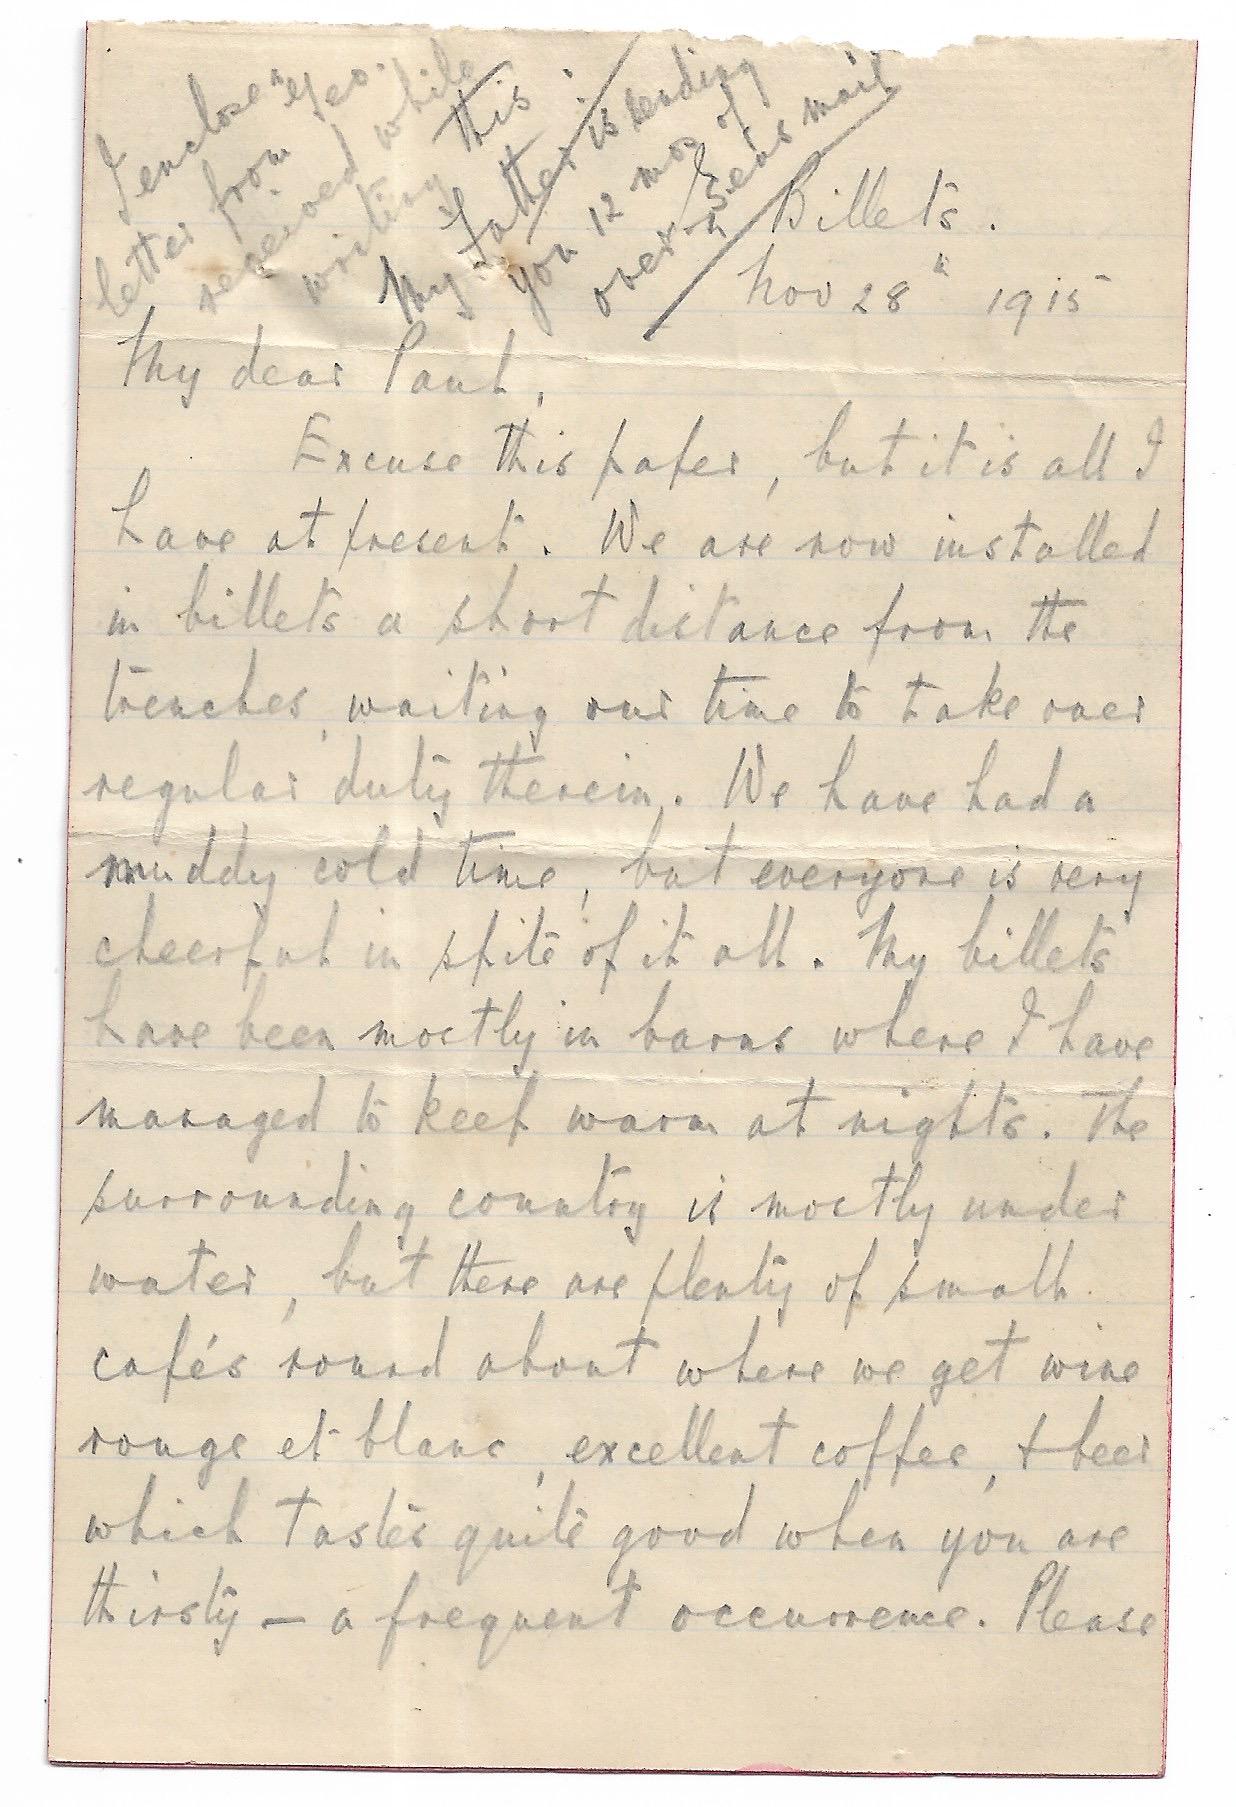 I enclose a
letter from Geo.
received while
writing this
My Father is sending
you 12 mos of
over Seas mail
Billets.
Nov 28th 1915
My dear Paul,
Excuse this paper, but it is all I
have at present. We are now installed
in billets a short distance from the
trenches, waiting our time to take over
regular duty therein. We have had a
muddy cold time, but everyone is very
cheerful in spite of it all. My billets
have been mostly in barns where I have
managed to keep warm at nights. The
surrounding country is mostly under
water, but there are plenty of small
cafés round about where we get wine
rouge et blanc, excellent coffee, & beer
which tastes quite good when you are
thirsty — a frequent occurrence. Please